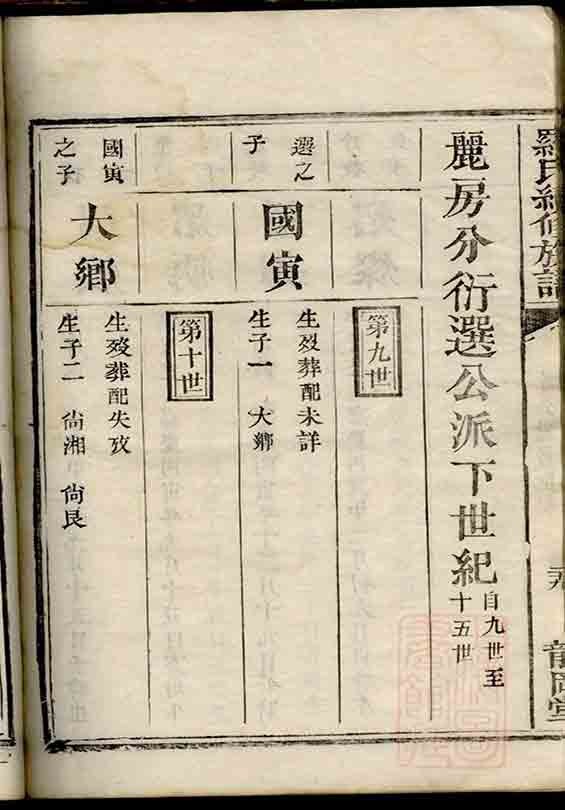 羅氏續修族譜
麗房分衍選公派下世紀
自九世至
十五世
第九世
選之
子
國寅
生歿葬配未詳
生子一 大鄉
第十世
國寅
之子
大鄉
生歿葬配失攷
生子二 尙湘 尙艮